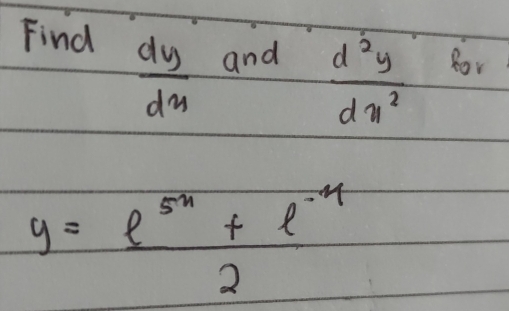 Find dy/dx and d²y/dx² for
y = e^{5x} + e^{-x} / 2